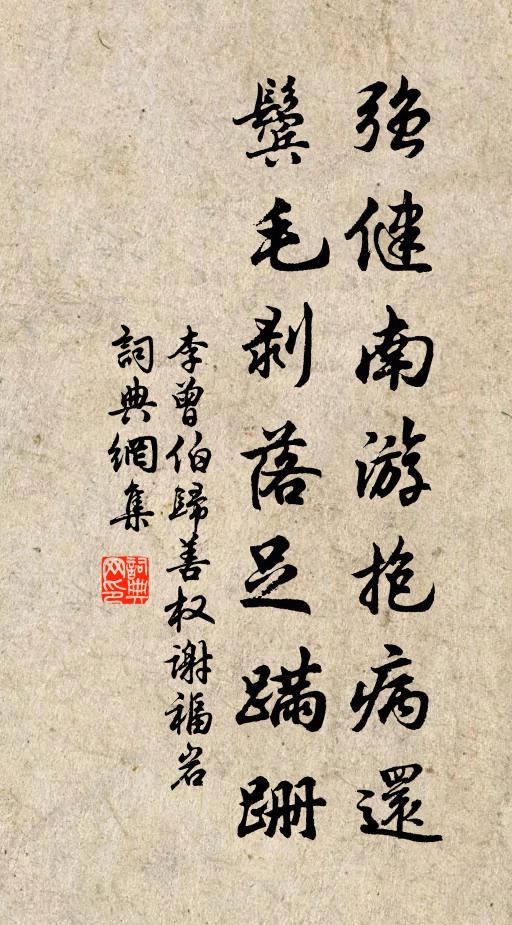 强健南游抱病還
鬓毛剥落足蹣跚
李曾伯歸善权谢福岩
詞典網集
詞典網印